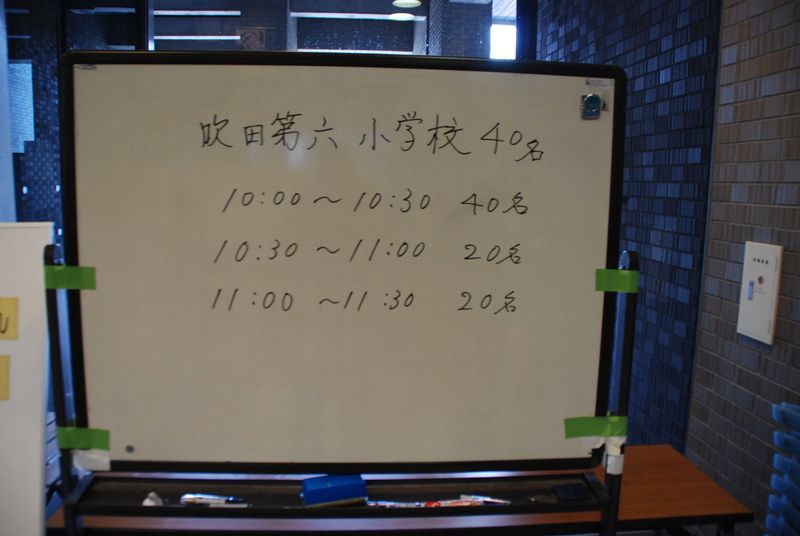 吹田第六 小学校 40名
10:00 ～ 10:30 40名
10:30 ～ 11:00 20名
11:00 ～ 11:30 20名